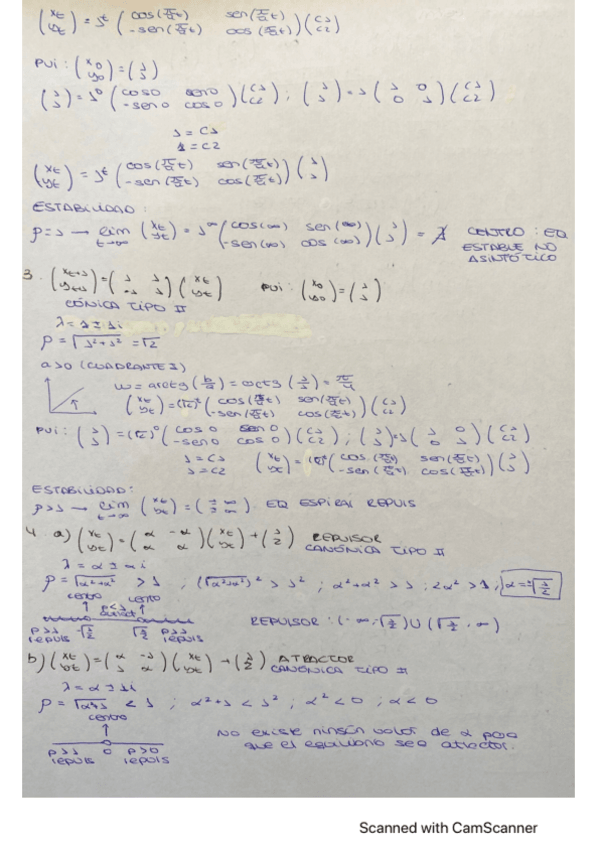 (xt yt) = 1^t ( cos(π/2 t) sen(π/2 t) -sen(π/2 t) cos(π/2 t) ) (C1 C2)
PVI : (x0 y0) = (1 1)
(1 1) = 1^0 ( cos0 sen0 -sen0 cos0 ) (C1 C2) ; (1 1) = 1 (1 0 0 1) (C1 C2)
1 = C1
1 = C2
(xt yt) = 1^t ( cos(π/2 t) sen(π/2 t) -sen(π/2 t) cos(π/2 t) ) (1 1)
ESTABILIDAD :
ρ=1 → lim t→∞ (xt yt) = 1^∞ ( cos(∞) sen(∞) -sen(∞) cos(∞) ) (1 1) = ∄ CENTRO : EQ
ESTABLE NO
ASINTÓTICO
3. (xt+1 yt+1) = (1 1 -1 1) (xt yt) PVI : (x0 y0) = (1 1)
CÓNICA TIPO II
λ = 1 ± 1i
ρ = √1²+1² = √2
a>0 (CUADRANTE 1)
ω = arctg (b/a) = arctg (1/1) = π/4
(xt yt) = (√2)^t ( cos(π/4 t) sen(π/4 t) -sen(π/4 t) cos(π/4 t) ) (C1 C2)
PVI : (1 1) = (√2)^0 ( cos0 sen0 -sen0 cos0 ) (C1 C2) ; (1 1) = 1 (1 0 0 1) (C1 C2)
1 = C1
1 = C2 (xt yt) = (√2)^t ( cos(π/4 t) sen(π/4 t) -sen(π/4 t) cos(π/4 t) ) (1 1)
ESTABILIDAD :
ρ>1 → lim t→∞ (xt yt) = (± ∞ ± ∞) EQ ESPIRAL REPULS
4. a) (xt yt) = (α -α α α) (xt yt) + (1 2) REPULSOR
CANÓNICA TIPO II
λ = α ± αi
ρ = √α²+α² > 1 ; (√α²+α²)² > 1² ; α²+α² > 1 ; 2α² > 1 ; α = ±√1/2
centro centro
ρ<1
ρ>1 repuls -√1/2 √1/2 ρ>1 repuls
REPULSOR : (-∞, √1/2) ∪ (√1/2, ∞)
b) (xt yt) = (α -1 1 α) (xt yt) + (1 2) ATRACTOR
CANÓNICA TIPO II
λ = α ± 1i
ρ = √α²+1 < 1 ; α²+1 < 1² ; α² < 0 ; α < 0
centro
ρ>1 repuls 0 ρ>0 repuls
NO existe ningún valor de α para
que el equilibrio sea atractor.
Scanned with CamScanner